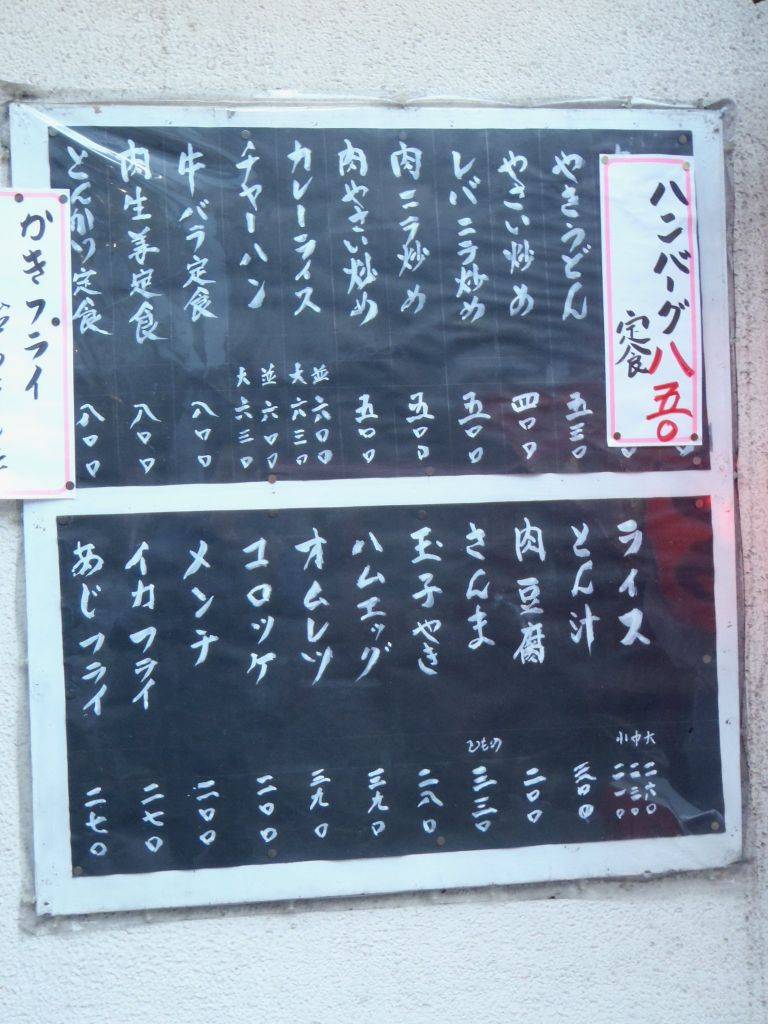 ハンバーグ 八五〇
定食
やきうどん 五三〇
やさい炒め 四〇〇
レバニラ炒め 五〇〇
肉ニラ炒め 五〇〇
肉やさい炒め 五〇〇
カレーライス 並六〇〇 大六三〇
チャーハン 並六〇〇 大六三〇
牛バラ定食 八〇〇
肉生姜定食 八〇〇
とんかつ定食 八〇〇
かきフライ
ライス 大二六〇 中二三〇 小二一〇
とん汁 三〇〇
肉豆腐 二〇〇
さんま ひもの 三三〇
玉子やき 二八〇
ハムエッグ 三九〇
オムレツ 三九〇
コロッケ 二〇〇
メンチ 二〇〇
イカフライ 二七〇
あじフライ 二七〇